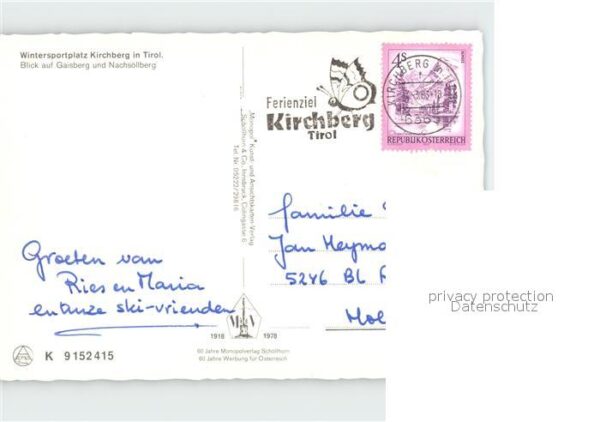 Wintersportplatz Kirchberg in Tirol.
Blick auf Gaisberg und Nachsöllberg
Ferienziel
Kirchberg
Tirol
4S
KIRCHBERG
REPUBLIK ÖSTERREICH
Monopol Kunst- und Ansichtskarten-Verlag
Schöllhorn & Co., Innsbruck,
Tel. Nr. 05222/29816
Groeten van
Ries en Maria
en anze ski-vrienden
familie
Jan Heyma
5246 BL
Hol
1918 1978
60 Jahre Monopolverlag Schöllhorn
60 Jahre Werbung für Österreich
K 9152415
privacy protection
Datenschutz